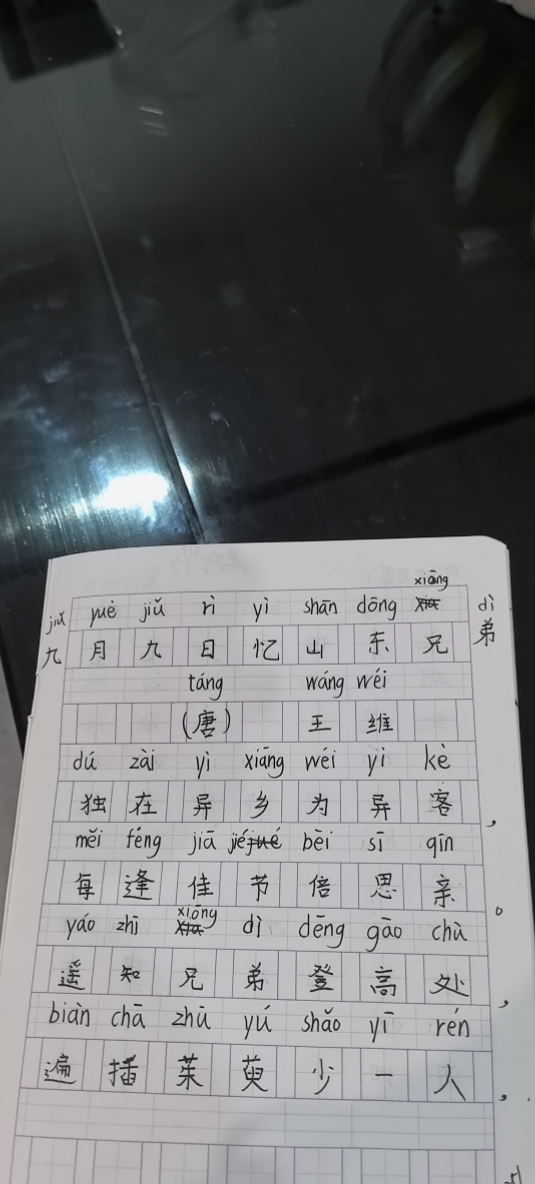 jiǔ yuè jiǔ rì yì shān dōng xiōng dì
九月九日忆山东兄弟
táng wáng wéi
（唐）王维
dú zài yì xiāng wéi yì kè
独在异乡为异客，
měi féng jiā jié bèi sī qīn
每逢佳节倍思亲。
yáo zhī xiōng dì dēng gāo chù
遥知兄弟登高处，
biàn chā zhū yú shǎo yī rén
遍插茱萸少一人，